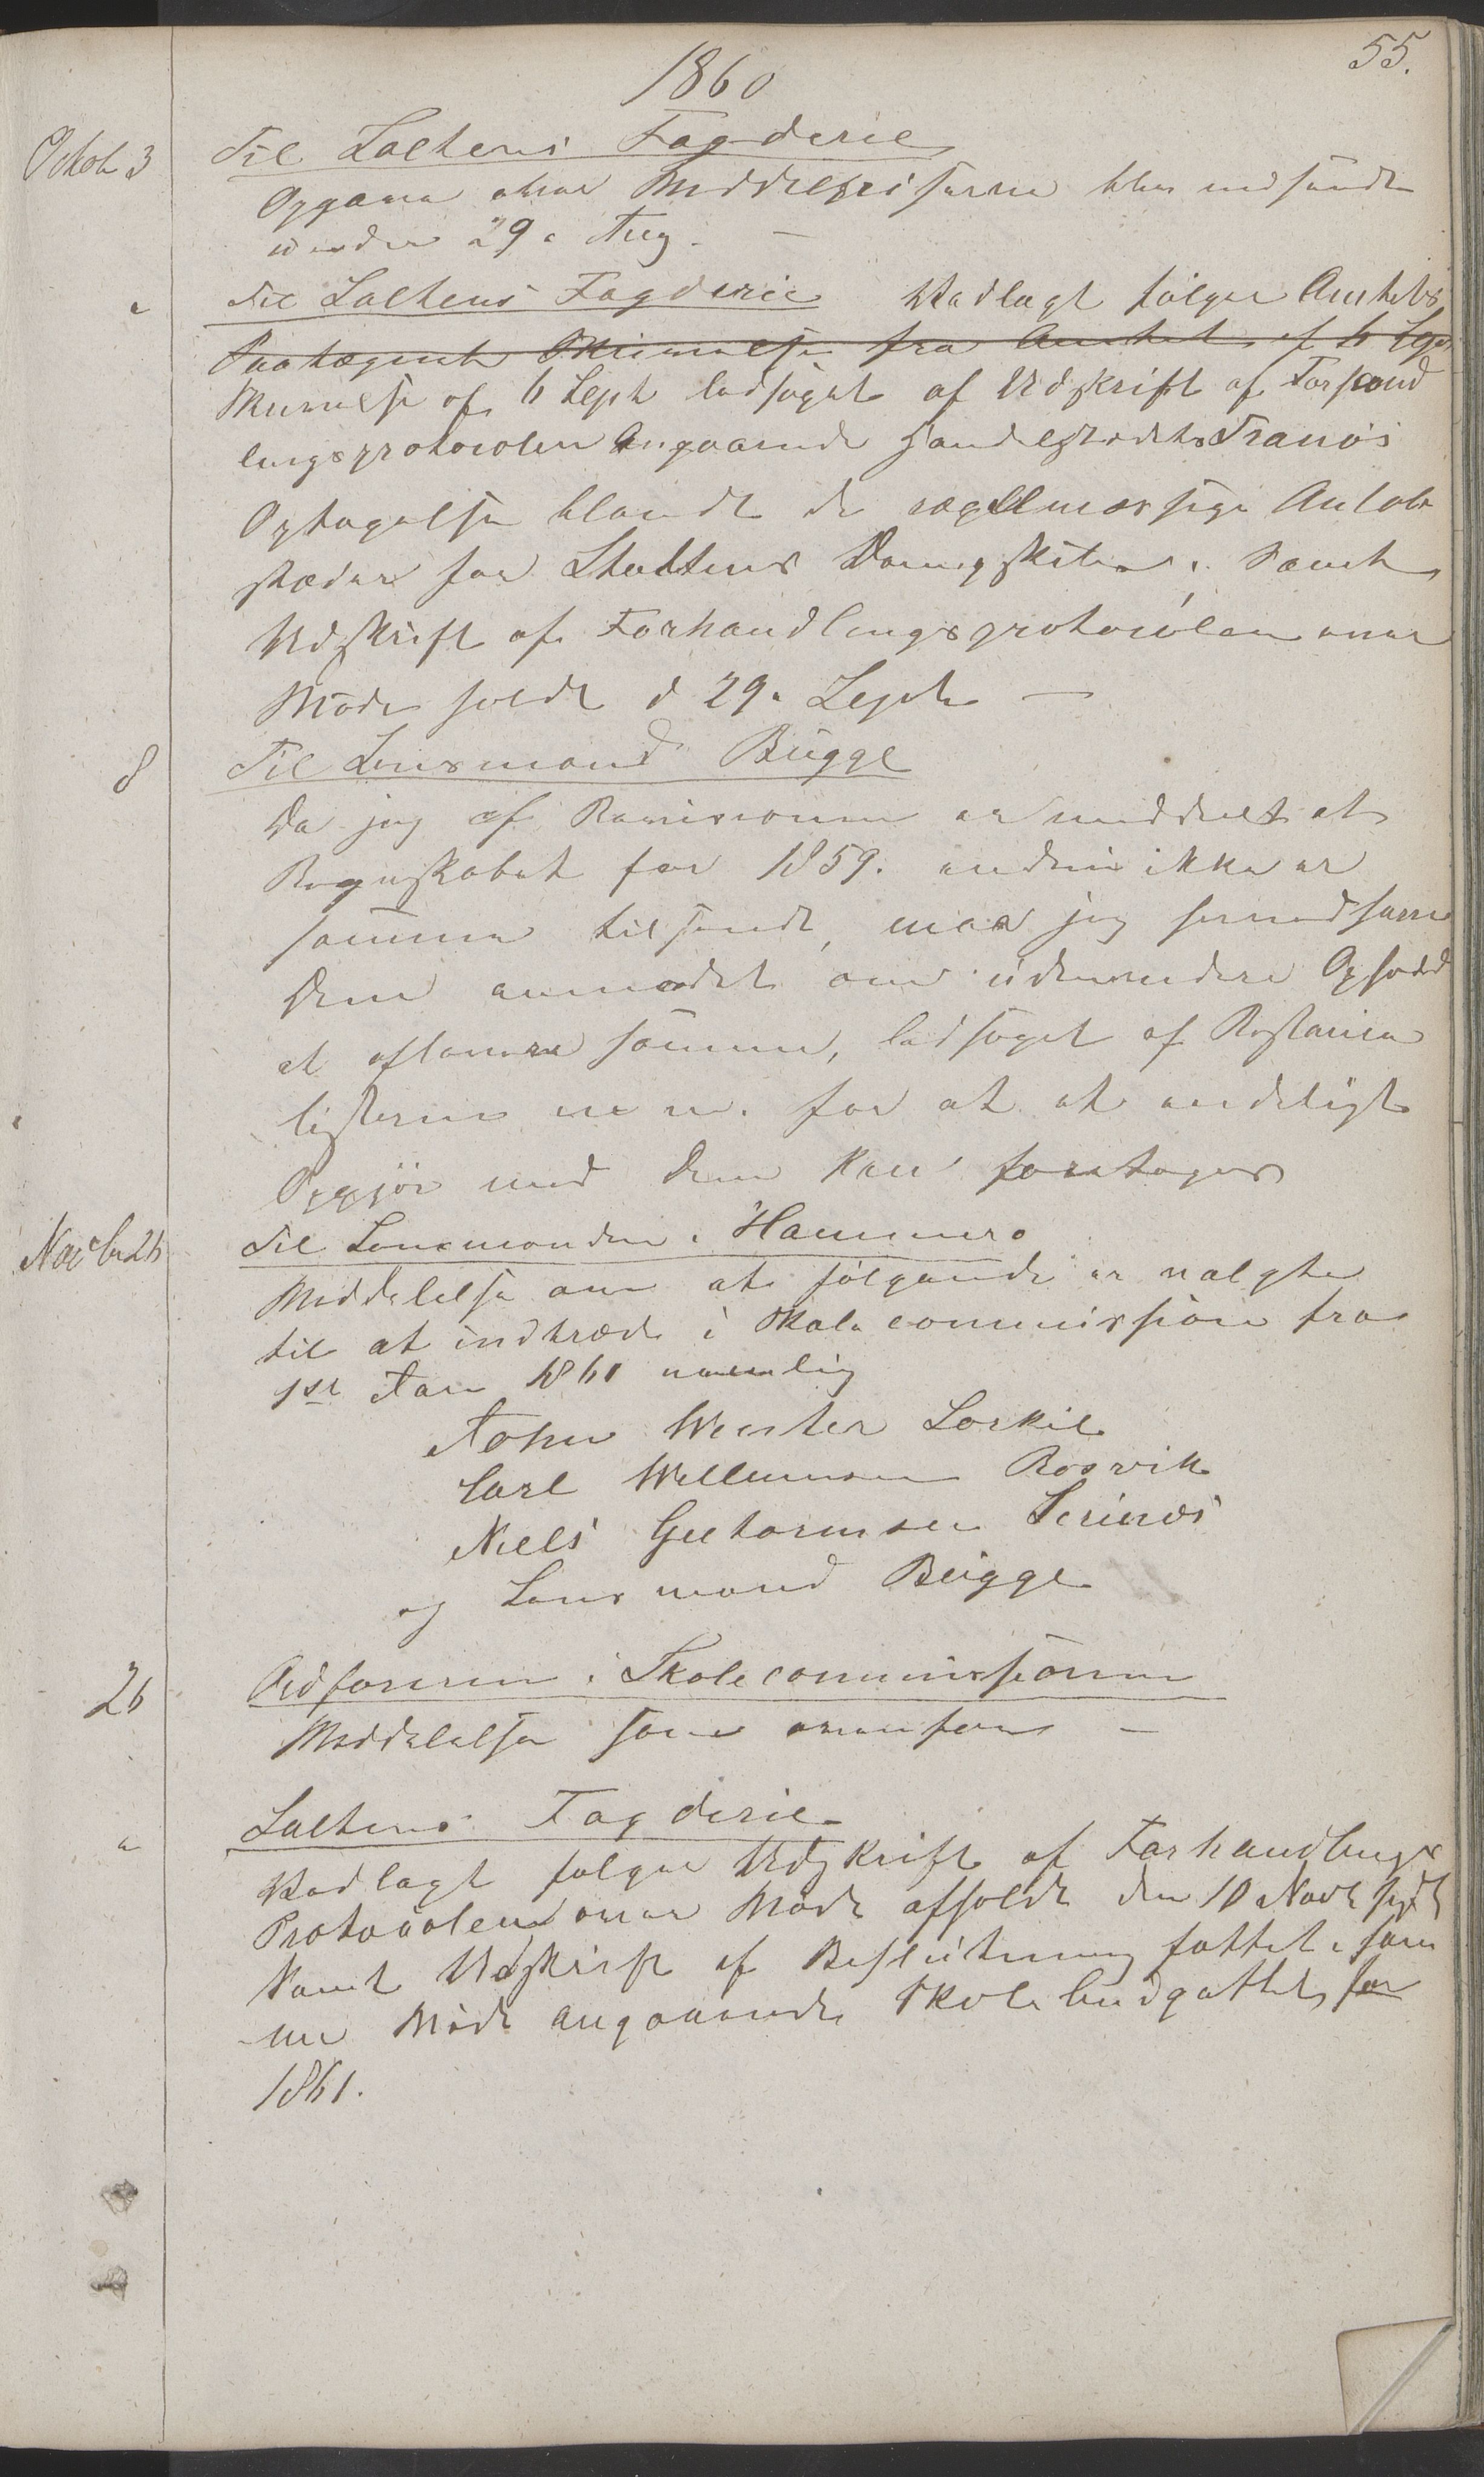 55.
1860
Octob 3
Til Saltens Fogderie
Opgave over Middelpriserne blev indsendt
under 29 Aug. —
"
Til Saltens Fogderie Vedlagt følger Amtets
Paategnet Skrivelse fra Amtet af 6 Sept
Skrivelse af 6 Sept ledsaget af Udskrift af Forhand
lingsprotocolen Angaaende Handelsstedet Tranøs
Optagelse blandt de regelmæssige Anløbs
steder for Stattens Dampskibe, samt
Udskrift af Forhandlingsprotocolen over
Møde holdt d 29 Sept —
8
Til Lensmand Bugge
Da jeg af Revisionen er meddelt at
Regnskabet for 1859. endnu ikke er
samme tilsendt, maa jeg herved have
Dem anmodet om uden videre Ophold
at aflevere samme, ledsaget af Restance
listerne m m. for at et endeligt
Opgjør med Dem kan foretages
Novbr 26
Til Lensmanden i Hammerø
Meddelelse om at følgende er valgte
til at indtræde i Skolecommission fra
1st Jan 1861 nemlig
John Wester
Carl Willumsen Rosvik
Niels Guttormsen
og Lensmand Bugge
26
Ordføreren i Skolecommissionen
Meddelelse som ovenfor —
"
Saltens Fogderie
Vedlagt følger Udskrift af Forhandlings
Protocolen over Møde afholdt den 10 Novb
samt Udskrift af Beslutning fattet i sam
-me Møde angaaende Skolebudgettet for
1861.